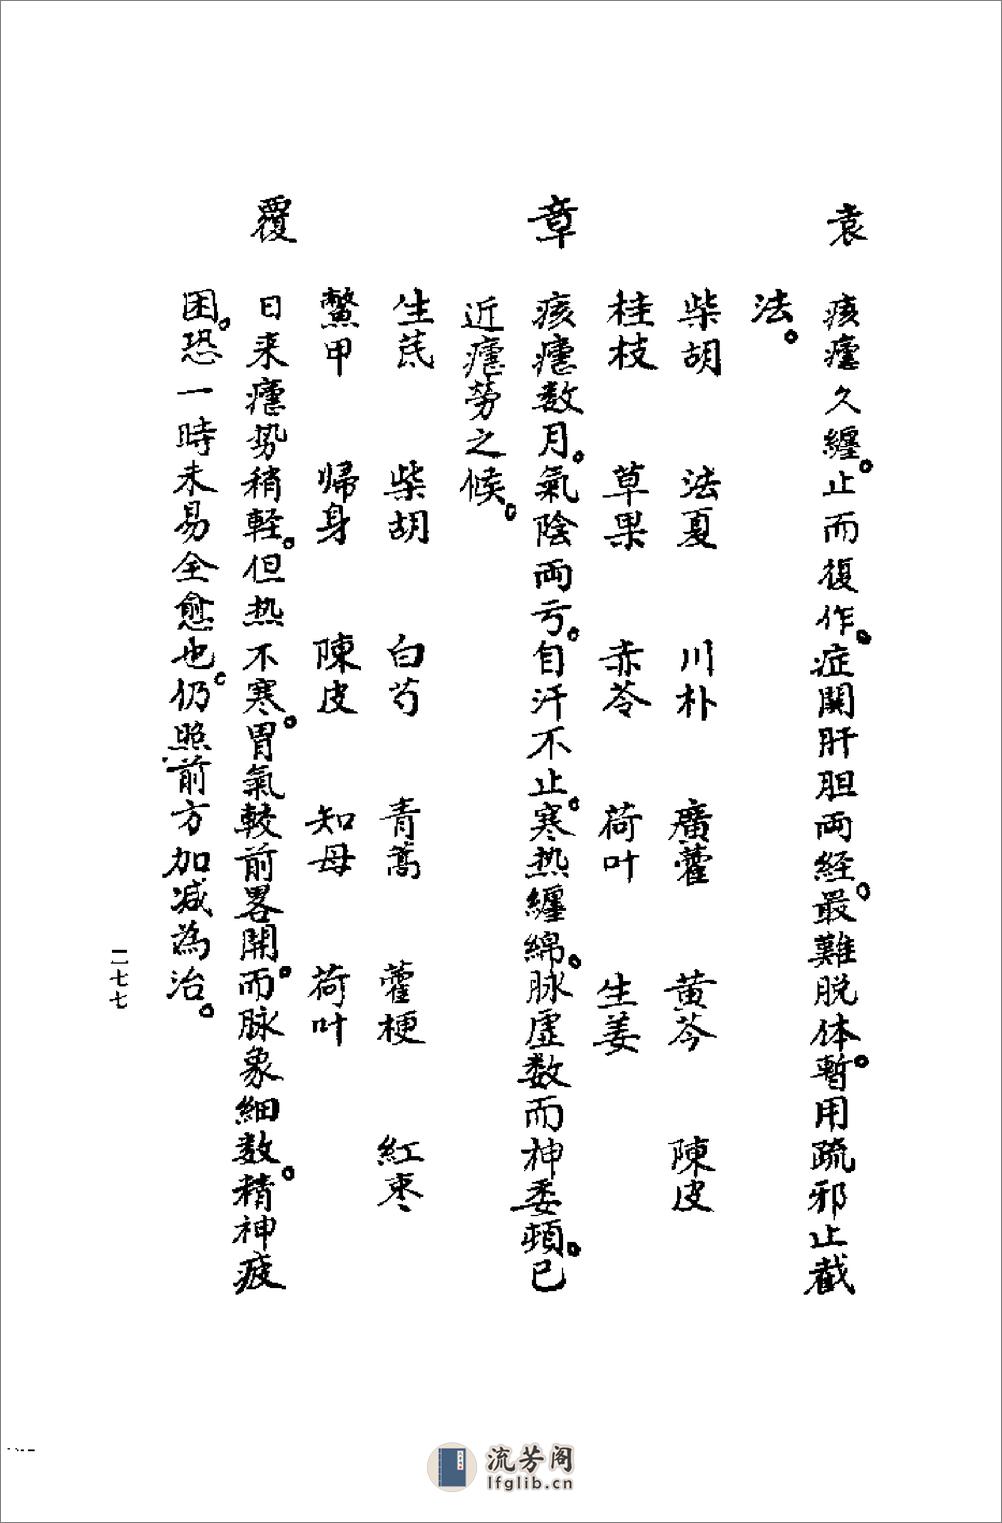 袁　痎瘧久纏。止而復作。症関肝胆両経。最難脱体。暫用疏邪止截
法。
柴胡　法夏　川朴　廣藿　黄芩　陳皮
桂枝　草果　赤苓　荷叶　生姜
章　痎瘧数月。氣陰両亏。自汗不止。寒热纏綿。脉虚数而神委頓。已
近瘧勞之候。
生芪　柴胡　白芍　青蒿　藿梗　紅枣
鱉甲　帰身　陳皮　知母　荷叶
覆　日来瘧势稍軽。但热不寒。胃氣較前畧開。而脉象細数。精神疲
困。恐一時未易全愈也。仍照前方加减為治。
二七七
流芳阁
lfglib.cn